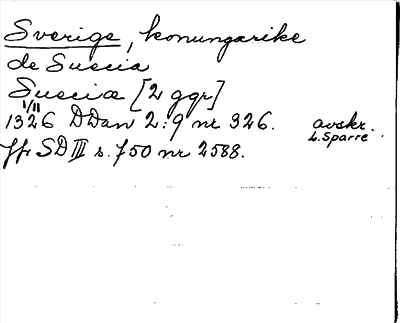 Sverige, konungarike
de Suecia
Suecia [2 ggr]
1/11
1326 DDan 2:9 nr 326. avskr.
L. Sparre
Jfr SD III s. 750 nr 2588.